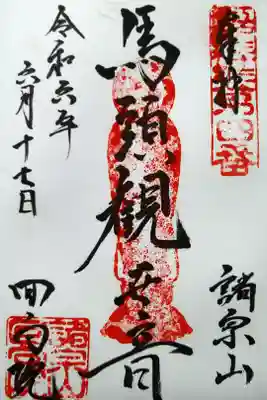 奉拝
諸宗山
馬頭觀世音
令和六年
六月十七日
回向院